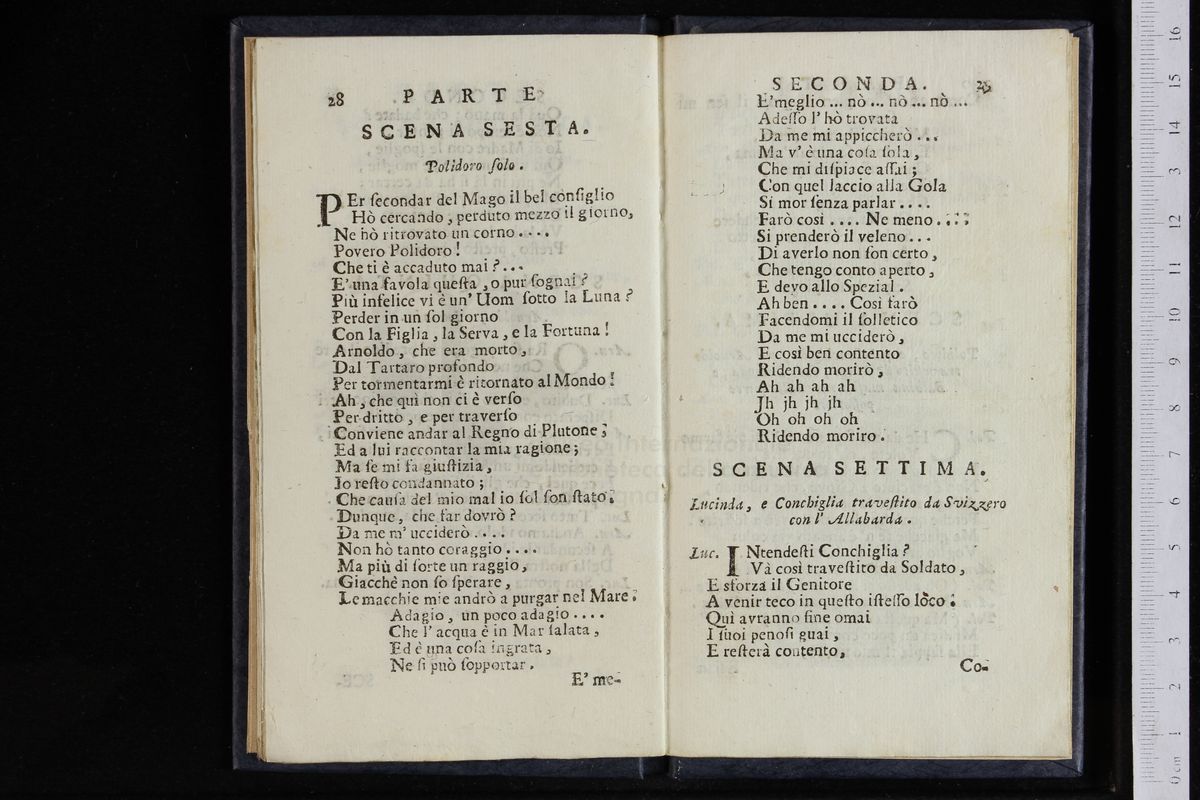 28 PARTE
SCENA SESTA.
Polidoro ſolo.
PEr ſecondar del Mago il bel conſiglio
Hò cercando, perduto mezzo il giorno,
Ne hò ritrovato un corno....
Povero Polidoro!
Che ti è accaduto mai?...
E' una favola queſta, o pur ſognai?
Più infelice vi è un' Uom ſotto la Luna?
Perder in un ſol giorno
Con la Figlia, la Serva, e la Fortuna!
Arnoldo, che era morto,
Dal Tartaro profondo
Per tormentarmi è ritornato al Mondo!
Ah, che quì non ci è verſo
Per dritto, e per traverſo
Conviene andar al Regno di Plutone;
Ed a lui raccontar la mia ragione;
Ma ſe mi fa giuſtizia,
Io reſto condannato;
Che cauſa del mio mal io ſol ſon ſtato.
Dunque, che far dovrò?
Da me m' ucciderò....
Non hò tanto coraggio....
Ma più di ſorte un raggio,
Giacchè non ſo ſperare,
Le macchie mie andrò a purgar nel Mare.
Adagio, un poco adagio....
Che l' acqua è in Mar ſalata,
Ed è una coſa ingrata,
Ne ſi può ſopportar.
E' me-
SECONDA. 29
E' meglio... nò... nò... nò...
Adeſſo l' hò trovata
Da me mi appiccherò...
Ma v' è una coſa ſola,
Che mi diſpiace aſſai;
Con quel laccio alla Gola
Si mor ſenza parlar....
Farò così.... Ne meno....
Si prenderò il veleno...
Di averlo non ſon certo,
Che tengo conto aperto,
E devo allo Spezial.
Ah ben.... Così farò
Facendomi il ſolletico
Da me mi ucciderò,
E così ben contento
Ridendo morirò,
Ah ah ah ah
Jh jh jh jh
Oh oh oh oh
Ridendo moriro.
SCENA SETTIMA.
Lucinda, e Conchiglia traveſtito da Svizzero
con l' Allabarda.
Luc. INtendeſti Conchiglia?
Và così traveſtito da Soldato,
E sforza il Genitore
A venir teco in queſto iſteſſo lòco.
Quì avranno fine omai
I ſuoi penoſi guai,
E reſterà contento,
Co-
0 cm 1 2 3 4 5 6 7 8 9 10 11 12 13 14 15 16